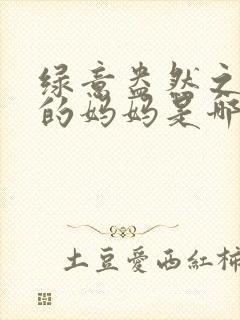 绿意盎然之
的妈妈是哪
土豆愛西紅柿